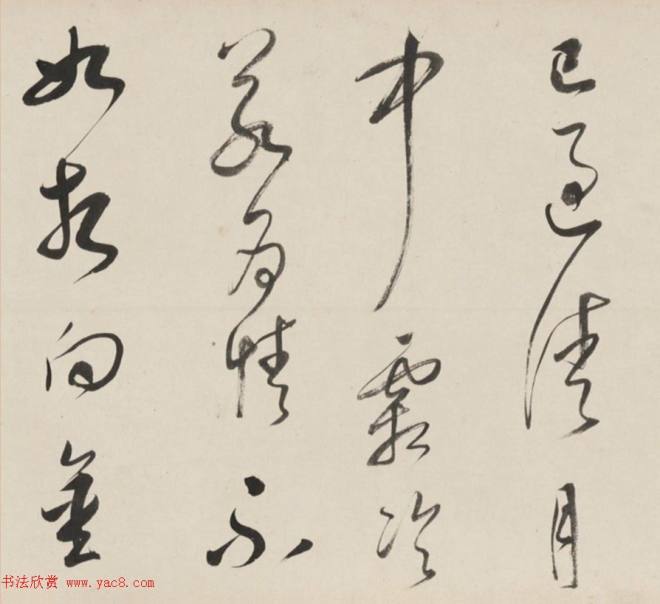 已過清月
中霜冷
若為情不
如相向金
书法欣赏 www.yac8.com